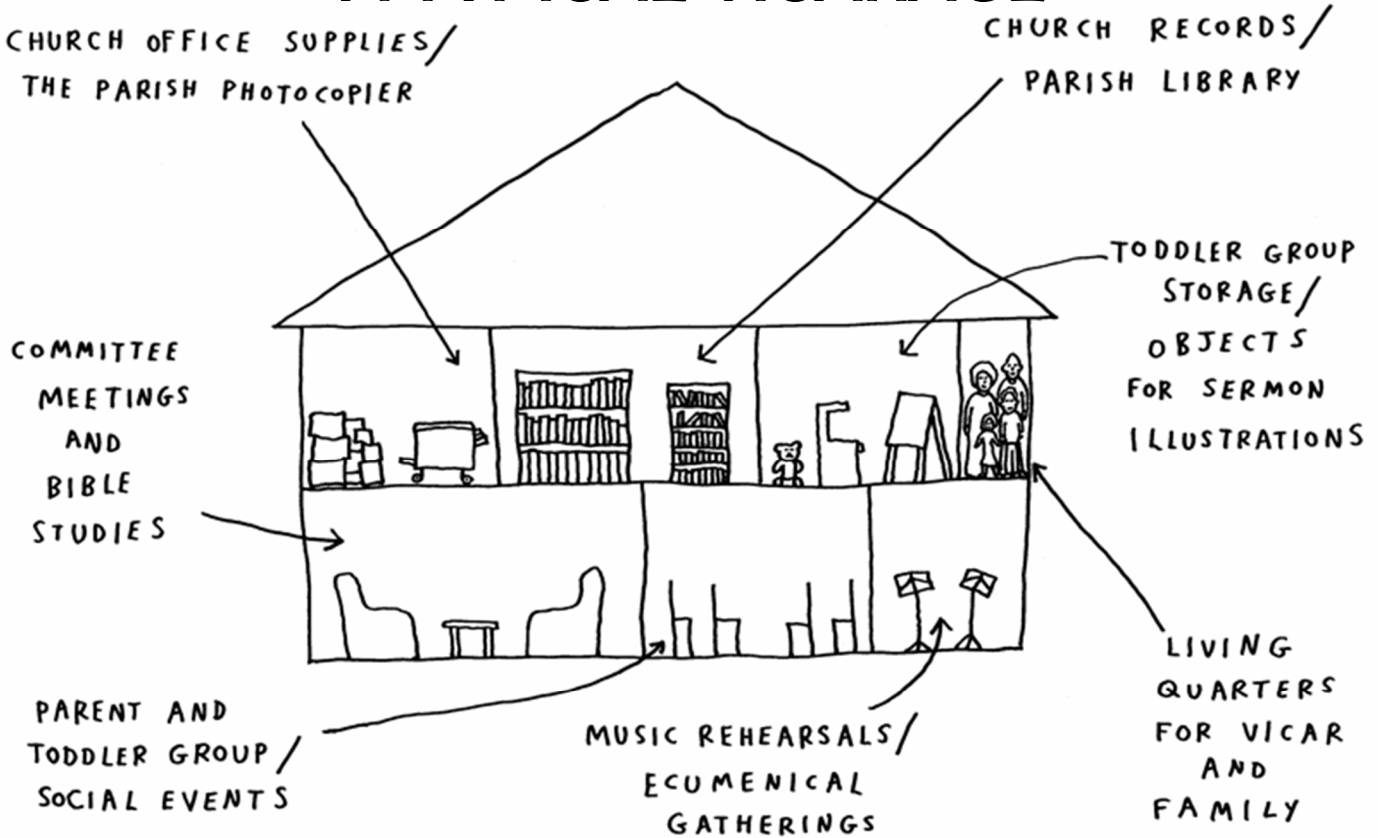 CHURCH OFFICE SUPPLIES/
THE PARISH PHOTOCOPIER
CHURCH RECORDS/
PARISH LIBRARY
TODDLER GROUP
STORAGE/
OBJECTS
FOR SERMON
ILLUSTRATIONS
COMMITTEE
MEETINGS
AND
BIBLE
STUDIES
PARENT AND
TODDLER GROUP/
SOCIAL EVENTS
MUSIC REHEARSALS/
ECUMENICAL
GATHERINGS
LIVING
QUARTERS
FOR VICAR
AND
FAMILY